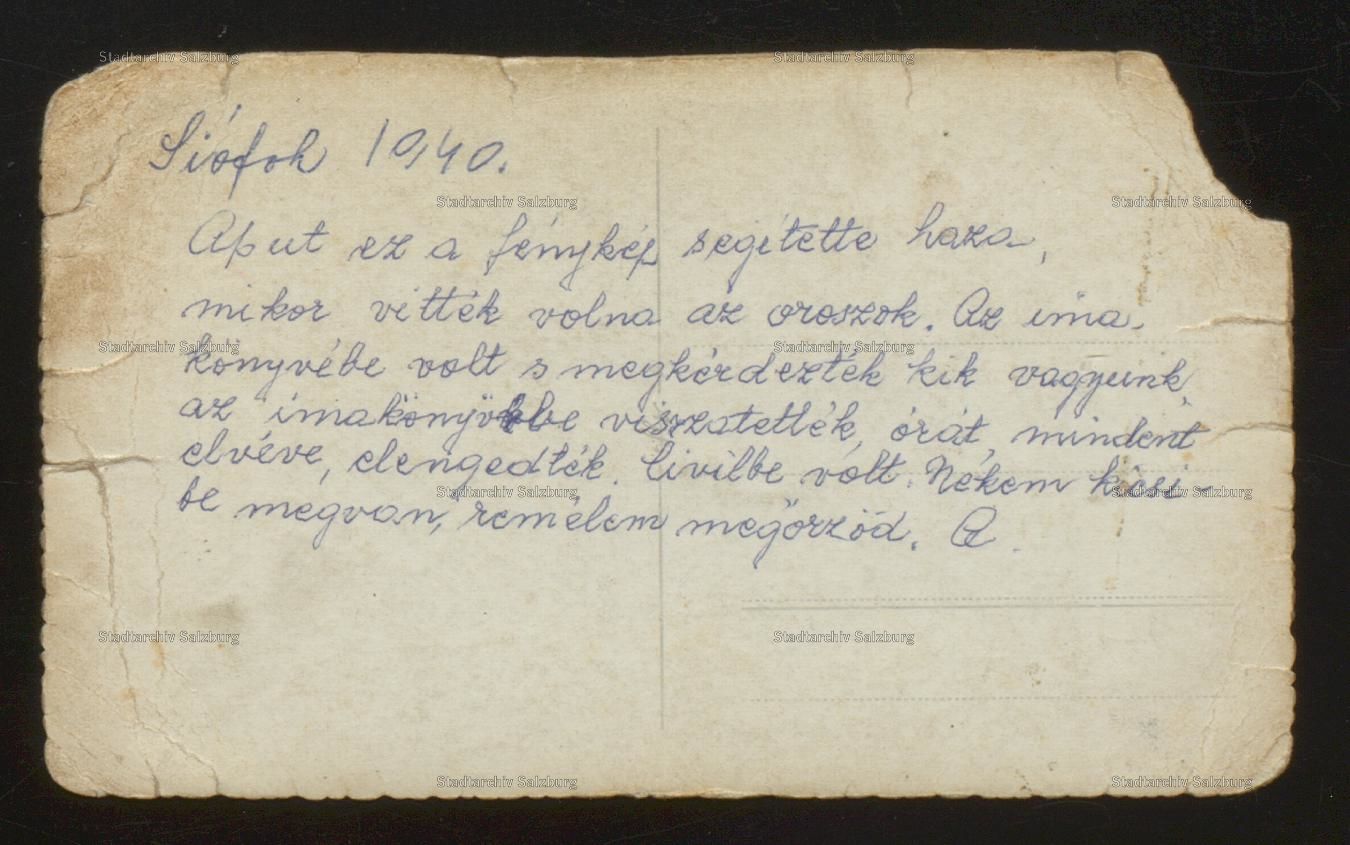 Siófok 1940.
Aput ez a fénykép segitette haza,
mikor vitték volna az oroszok. Az ima-
könyvébe volt s megkérdezték kik vagyunk,
az imakönyvbe visszatették, órát, mindent
elvéve, elengedték. Civilbe volt. Nékem kicsi-
be megvan, remélem megőrzöd. A.
Stadtarchiv Salzburg
Stadtarchiv Salzburg
Stadtarchiv Salzburg
Stadtarchiv Salzburg
Stadtarchiv Salzburg
Stadtarchiv Salzburg
Stadtarchiv Salzburg
Stadtarchiv Salzburg
Stadtarchiv Salzburg
Stadtarchiv Salzburg
Stadtarchiv Salzburg
Stadtarchiv Salzburg